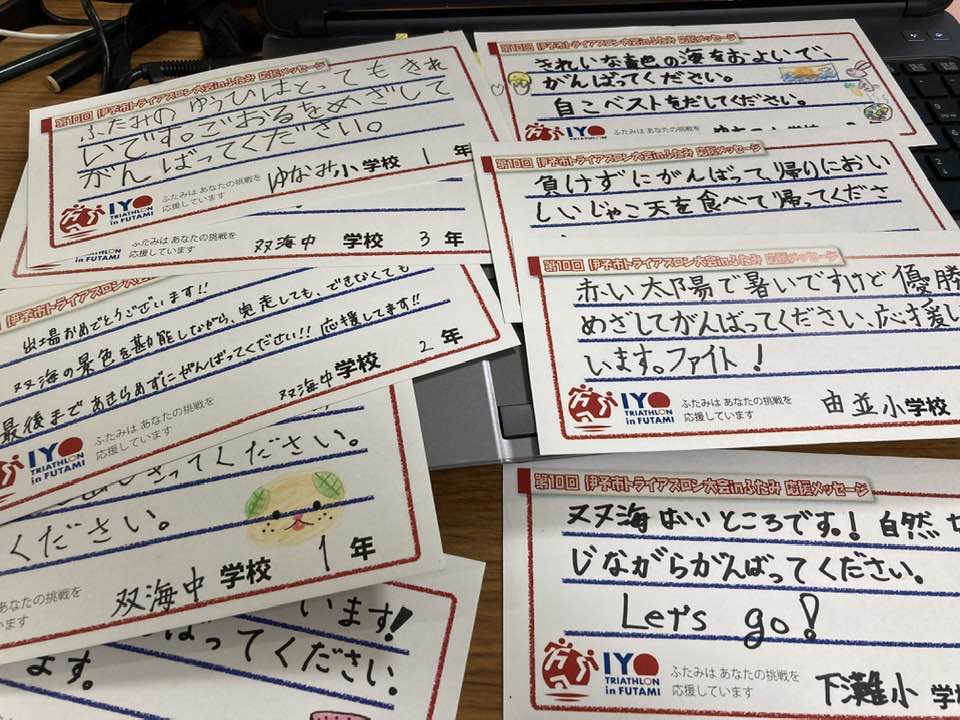 第10回 伊予市トライアスロン大会inふたみ 応援メッセージ
ふたみの ゆうひはとってもきれ
いです。ごおるをめざして
がんばってください。
ふたみは あなたの挑戦を
応援しています
IYO
TRIATHLON
in FUTAMI
ゆなみ小学校 1年
ふたみは あなたの挑戦を
応援しています
双海中 学校 3年
伊予市トライアスロン大会
出場おめでとうございます!!
双海の景色を堪能しながら、完走しても、できなくても
最後まであきらめずにがんばってください!! 応援してます!!
IYO
TRIATHLON
in FUTAMI
ふたみは あなたの挑戦を
応援しています
双海中学校 2年
ってください。
ください。
あなたの挑戦を
います
双海中 学校 1年
います!
ばってください。
ます。
第10回 伊予市トライアスロン大会inふたみ 応援メッセージ
きれいな青色の海をおよいで
がんばってください。
自こベストをだしてください。
IYO
ふたみは あなたの挑戦を
第10回 伊予市トライアスロン大会inふたみ 応援メッセージ
負けずにがんばって、帰りにおい
しいじゃこ天を食べて帰ってくださ
第10回 伊予市トライアスロン大会inふたみ 応援メッセージ
赤い太陽で暑いですけど優勝
めざしてがんばってください、応援し
います。ファイト!
IYO
TRIATHLON
in FUTAMI
ふたみは あなたの挑戦を
応援しています
由並小学校
第10回 伊予市トライアスロン大会inふたみ 応援メッセージ
双海はいいところです。! 自然
じながらがんばってください。
Let's go!
IYO
TRIATHLON
in FUTAMI
ふたみは あなたの挑戦を
応援しています
下灘小 学